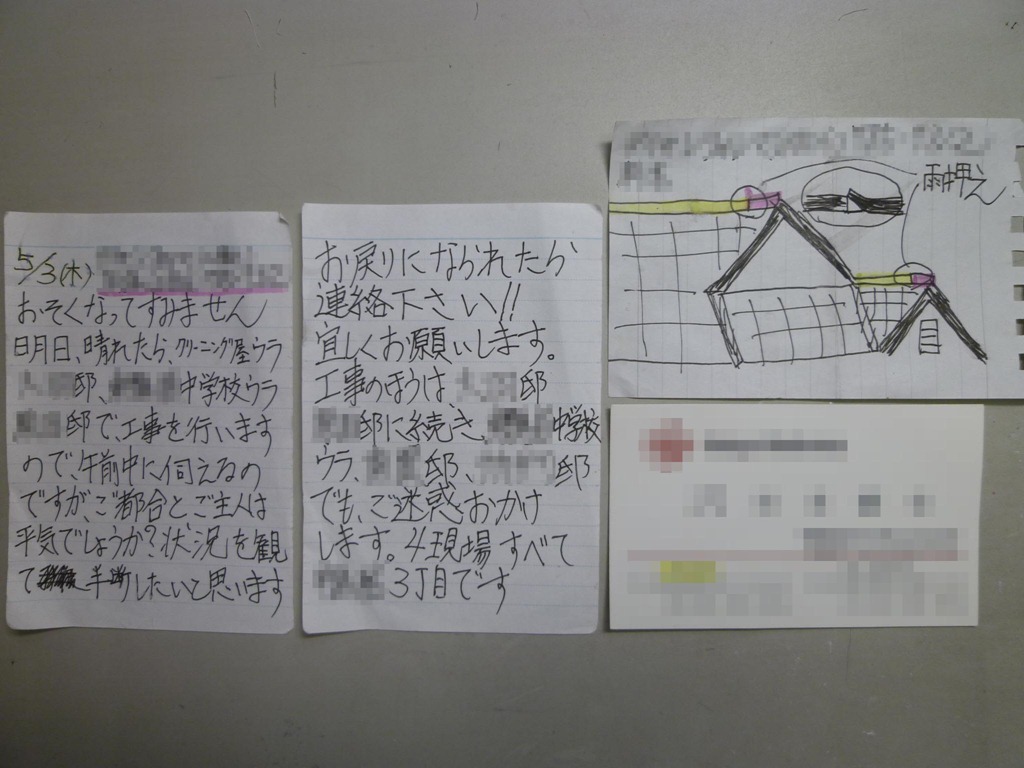 5/3(木)
おそくなってすみません
明日、晴れたら、クリーニング屋ウラ
邸、中学校ウラ
邸で、工事を行います
ので、午前中に伺えるの
ですが、ご都合とご主人は
平気でしょうか?状況を観
て判断したいと思います
お戻りになられたら
連絡下さい!!
宜しくお願いします。
工事のほうは、邸
邸に続き、中学校
ウラ、邸、邸
でも、ご迷惑おかけ
します。4現場すべて
3丁目です
雨押え